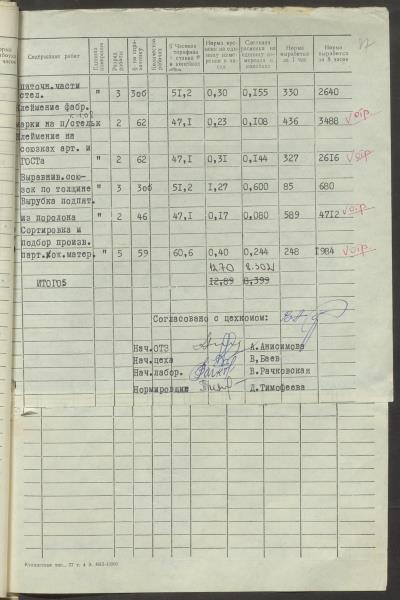 Содержание работ | Единица измерения | Разряд работы | § по тариф. | Количество рабочих | Часовая тарифная ставка в копейках | Норма времени на единицу измерения в часах | Сдельная расценка на единицу измерения в копейках | Норма выработки за 1 час | Норма выработки за 8 часов
пяточн.части
стел. " 3 3об 51,2 0,30 0,155 330 2640
Клеймение фабр.
марки на п/стельк " 2 62 47,1 0,23 0,108 436 3488
Клеймение на
союзках арт. и
ГОСТа " 2 62 47,1 0,31 0,144 327 2616
Выравнив.сою-
зок по толщине " 3 3об 51,2 1,27 0,600 85 680
Вырубка подпят.
из поролона " 2 46 47,1 0,17 0,080 589 4712
Сортировка и
подбор произв.
парт.кож.матер. " 5 59 60,6 0,40 0,244 248 1984
ИТОГО5 12,89 6,399
Согласовано с цехкомом:
Нач.ОТЗ А.Анисимова
Нач.цеха В,Баев
Нач.лабор. В.Рачковская
Нормировщик Д.Тимофеева